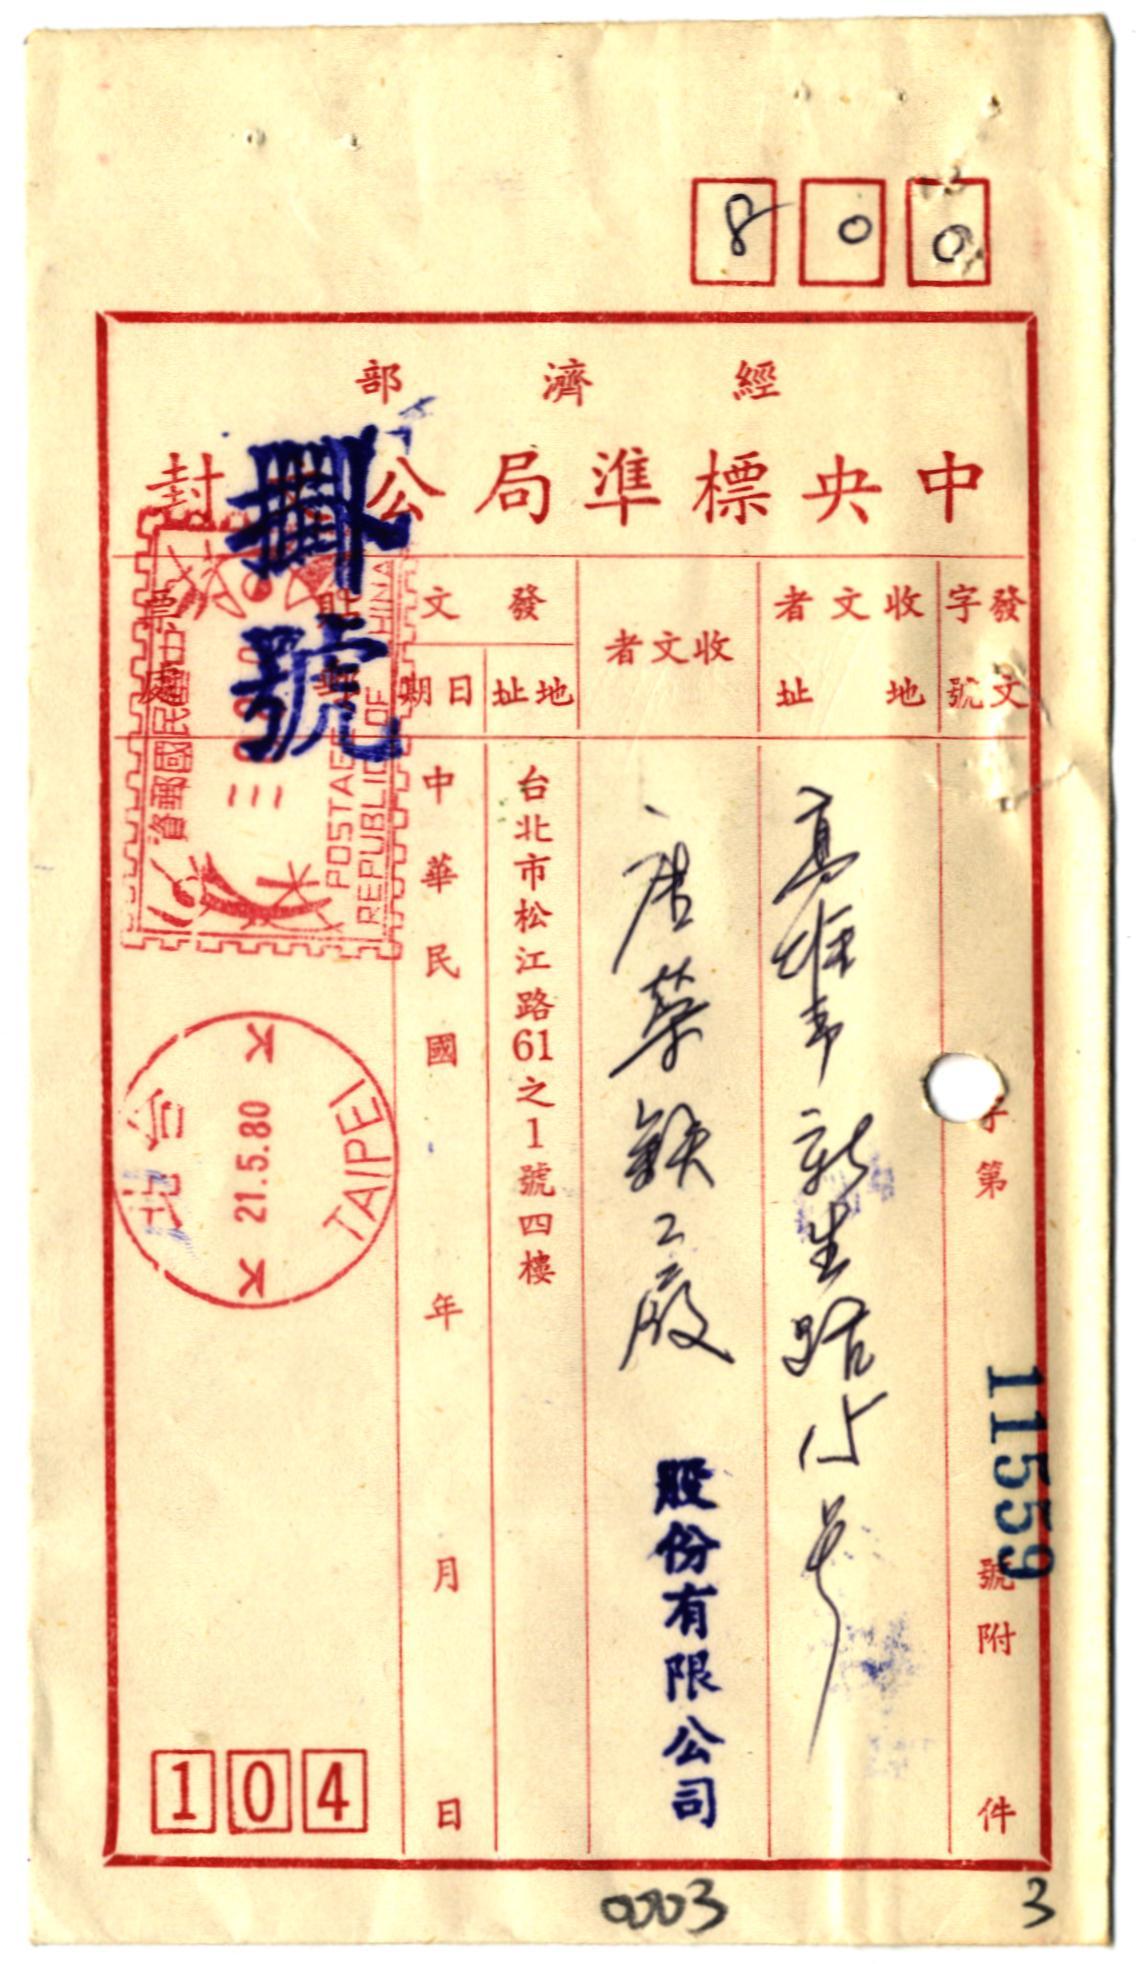 800
經濟部
中央標準局公 封
發文字號
字第
號附
件
11559
收文者地址
高雄市新生路
號
收文者
唐榮鐵工廠
股份有限公司
發文
地址
台北市松江路61之1號四樓
日期
中華民國 年 月 日
掛號
POSTAGE
REPUBLIC OF CHINA
TAIPEI
21.5.80
台北
104
0003
3